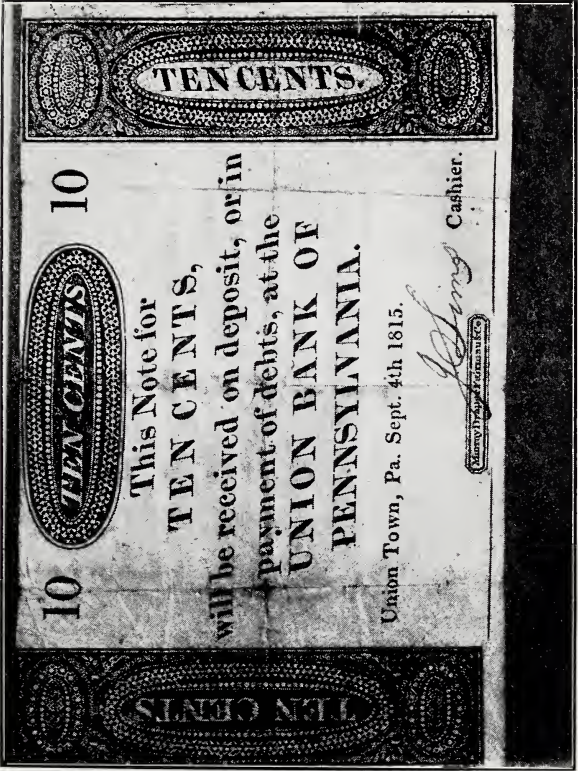 TEN CENTS
10 TEN CENTS 10
This Note for
TEN CENTS,
will be received on deposit, or in
payment of debts, at the
UNION BANK OF
PENNSYLVANIA.
Union Town, Pa. Sept. 4th 1815.
J Sims Cashier.
Murray Draper Fairman & Co
TEN CENTS.